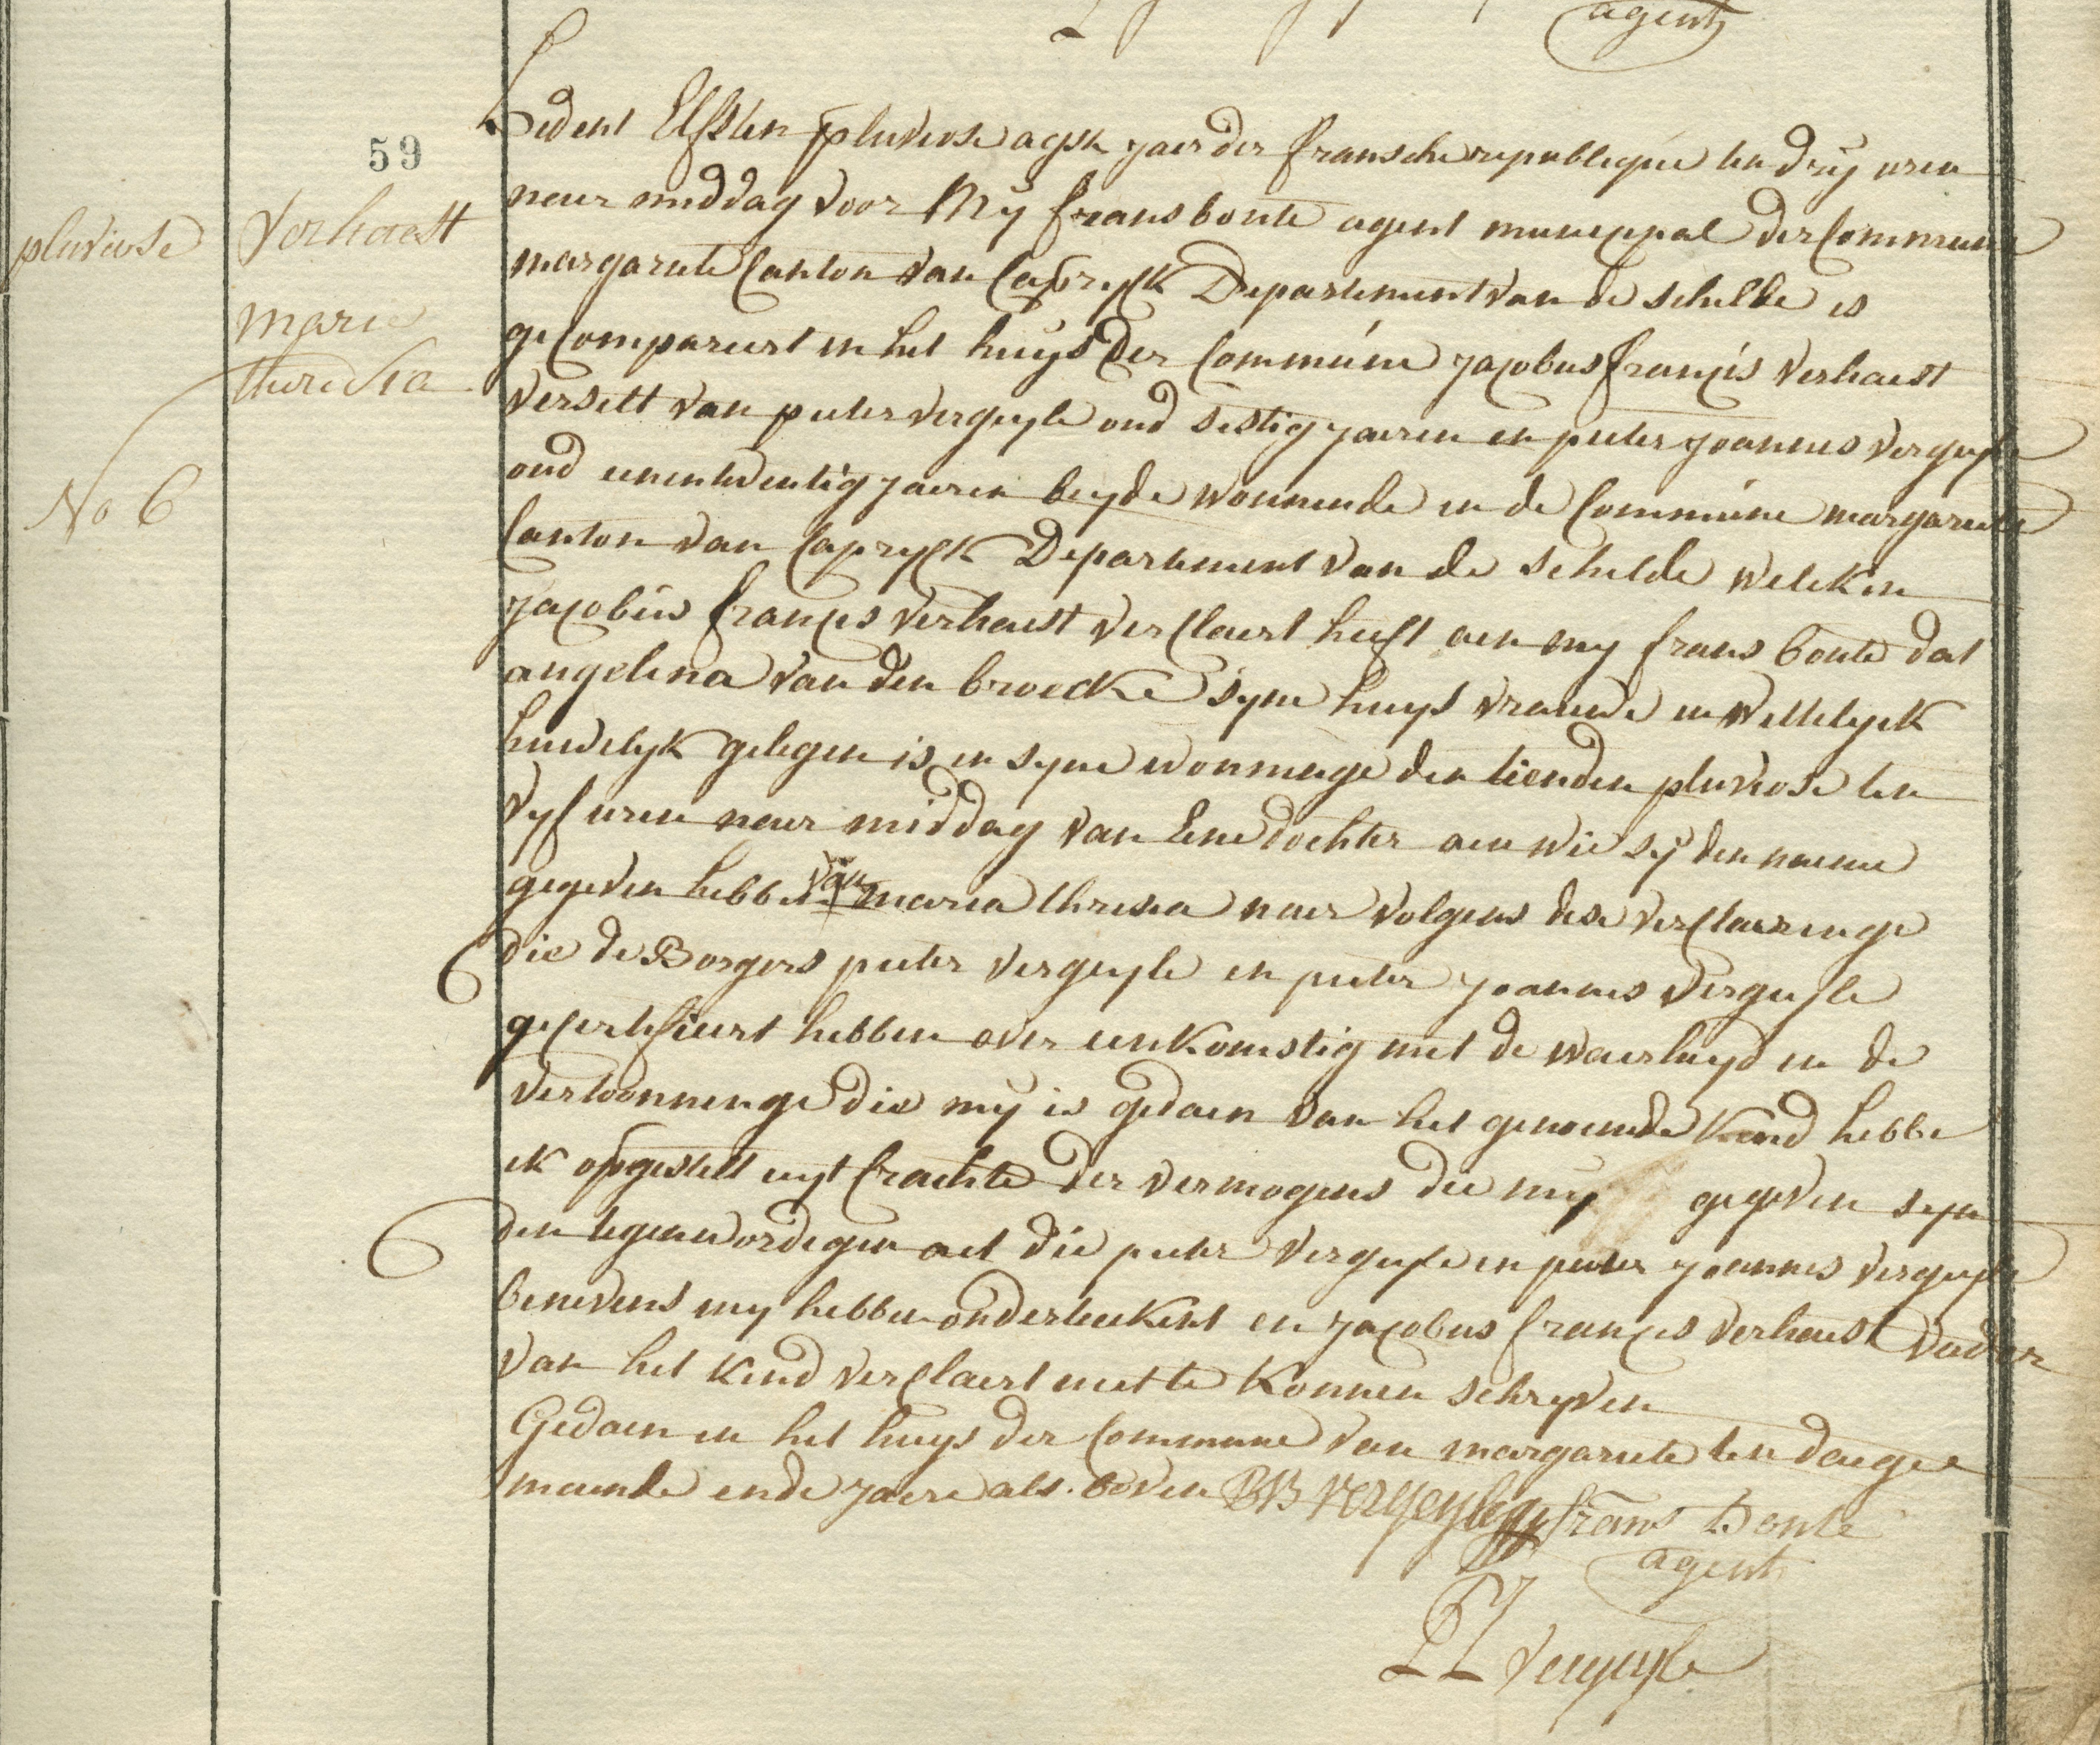 agent
59
pluviose
Verhaest
marie
theresia
No 6
Hedent Elfsten pluviose agste jaer der fransche republeque ten dry uren
naer middag voor My frans bonte agent municypael der Commune
margariete Canton van Capryck Departement van de schelde is
gecompareert in het huys der Commune jacobus francis verhaest
verselt van pieter vergeyle oud sestig jaeren en pieter joannes vergeyle
oud eenentwentig jaeren beyde wonnende in de Commune margariete
Canton van Capryck Departement van de schelde welcken
jacobus francis verhaest verclaert heeft aen my frans bonte dat
angelina van den broecke syne huys vrauwe in wettelyck
huwelyk gelegen is in syne wonninge den tienden pluviose ten
vyf uren naer middag van Eene dochter aen wie sy den naeme
gegeven hebben van maria thresia naer volgens dese verclaeringe
die de Borgers pieter vergeyle en pieter joannes vergeyle
gecertifieert hebben over eenkomstig met de waerheyd en de
vertoonninge die my is gedaen van het genoemde kind hebbe
ik opgestelt uyt crachte der vermogens die my gegeven syn
den tegenwordegen act die pieter vergeyle en pieter joannes vergeyle
benevens my hebben onderteekent en jacobus francis verhaest vader
van het kind verclaert niet te konnen schryven
Gedaen in het huys der Commune van margariete ten daege
maende ende jaere als boven PB vergeyle frans Bonte
agent
PJ vergeyle